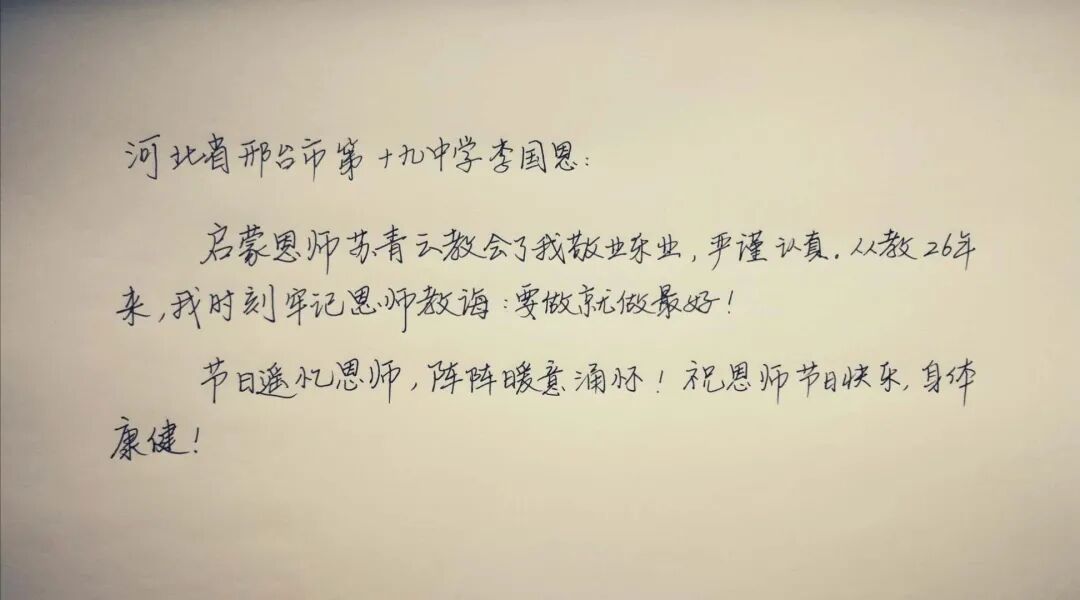 河北省邢台市第十九中学李国恩：
启蒙恩师苏青云教会了我敬业乐业，严谨认真。从教26年
来，我时刻牢记恩师教诲：要做就做最好！
节日遥忆恩师，阵阵暖意涌怀！祝恩师节日快乐，身体
康健！